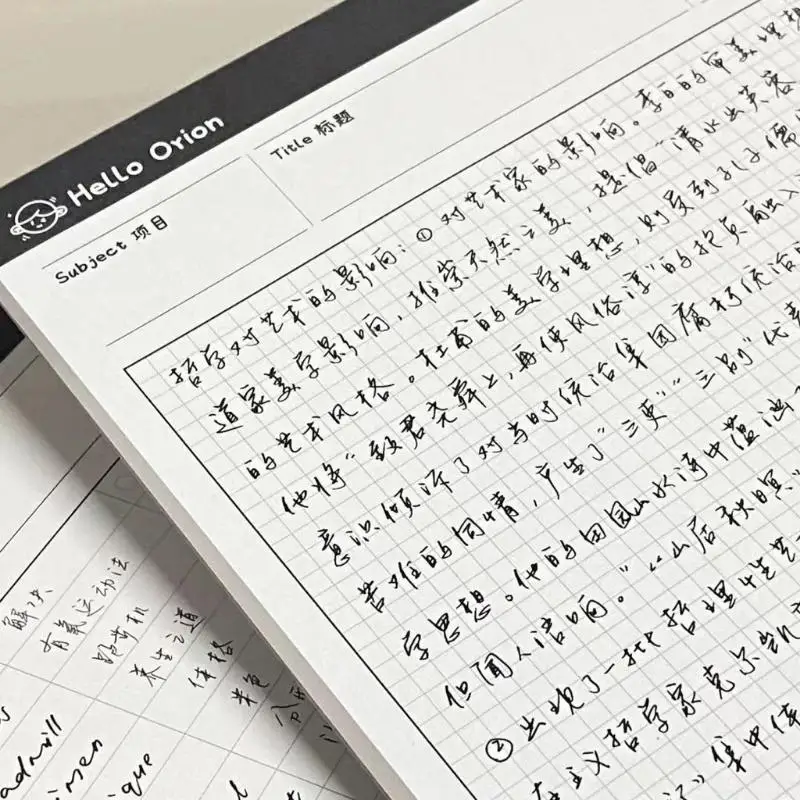 Hello Orion
Subject 项目
Title 标题
哲学对艺术的影响：① 对艺术家的影响。李白的审美理想
道家美学影响，推崇天然之美，提倡“清水出芙蓉
的艺术风格。杜甫的美学理想，则受到孔子儒
他将“致君尧舜上，再使风俗淳”的抱负融入
意识倾诉了对当时统治集团腐朽统治
苦难的同情，产生了“三吏”“三别”代表
学思想。他的田园山水诗中蕴
但闻人语响。”《山居秋暝》
② 出现了一批哲理性艺
在主义哲学家克尔凯
》集中体
解决
有氧运动法
跑步机
养生之道
体格
admill
imen
ique